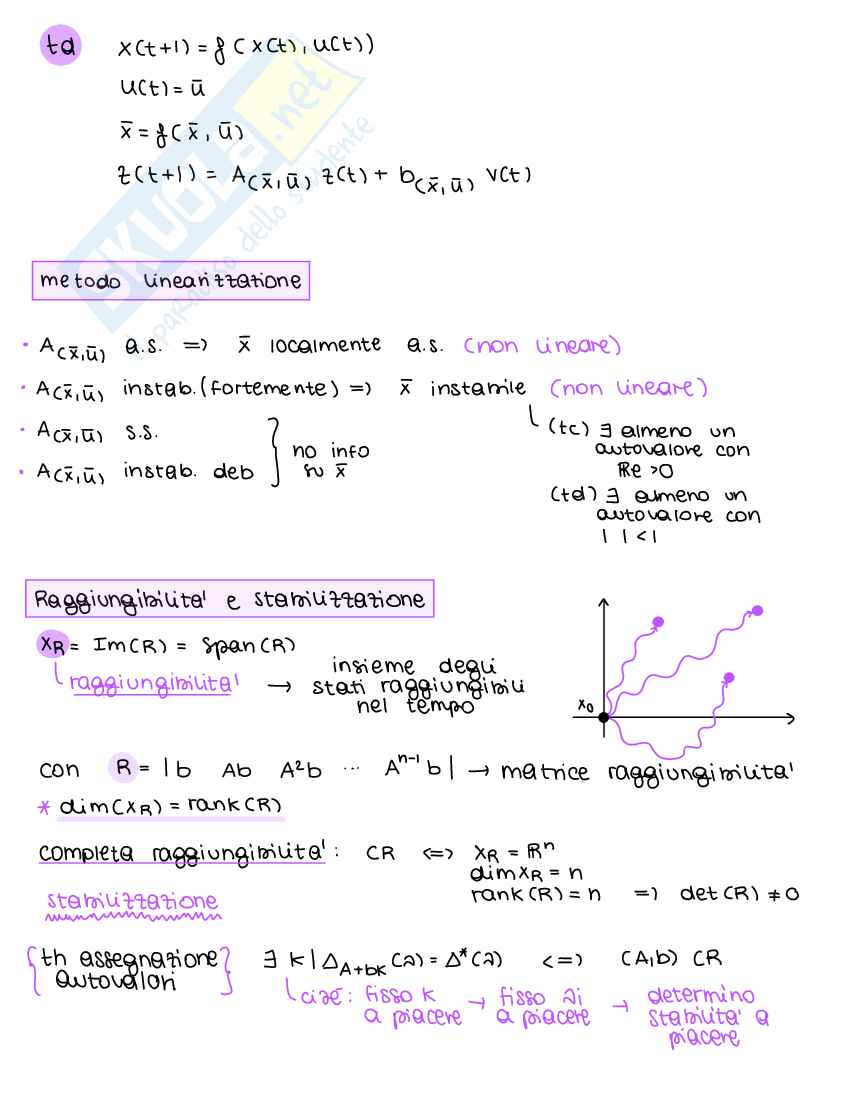 td
x(t+1) = f(x(t), u(t))
u(t) = ū
x̄ = f(x̄, ū)
z(t+1) = A(x̄,ū) z(t) + b(x̄,ū) v(t)
SKUOLA.net
il paradiso dello studente
metodo linearizzazione
• A(x̄,ū) a.s. => x̄ localmente a.s. (non lineare)
• A(x̄,ū) instab. (fortemente) => x̄ instabile (non lineare)
(tc) ∃ almeno un
autovalore con
Re >0
(td) ∃ almeno un
autovalore con
| | < 1
• A(x̄,ū) s.s.
• A(x̄,ū) instab. deb
no info
su x̄
Raggiungibilita' e stabilizzazione
XR = Im(R) = span(R)
raggiungibilita' → insieme degli
stati raggiungibili
nel tempo
x₀
con R = | b Ab A²b ... Aⁿ⁻¹b | → matrice raggiungibilita'
* dim(XR) = rank(R)
completa raggiungibilita': CR <=> XR = ℝⁿ
dim XR = n
rank(R) = n => det(R) ≠ 0
stabilizzazione
{th assegnazione
autovalori}
∃ k | Δ_A+bk (λ) = Δ*(λ) <=> (A,b) CR
cioè: fisso k
a piacere
→ fisso λi
a piacere
→ determino
stabilita' a
piacere